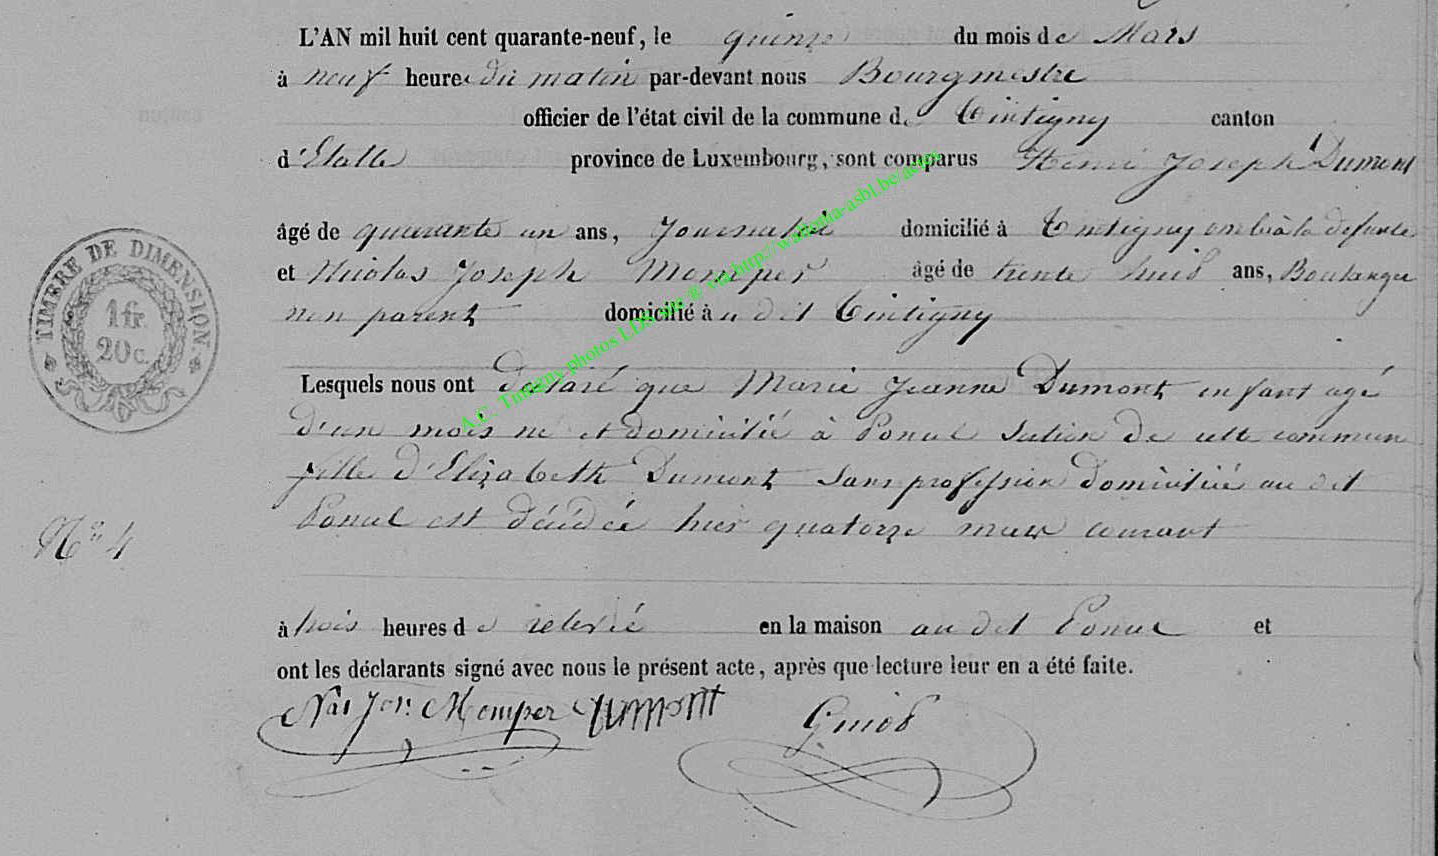 L'AN mil huit cent quarante-neuf, le quinze du mois de Mars
à neuf heures du matin par-devant nous Bourgmestre
officier de l'état civil de la commune de Tintigny canton
d'Etalle province de Luxembourg, sont comparus Henri Joseph Dumont
âgé de quarante un ans, Journalié domicilié à Tintigny la defunte
et Nicolas Joseph Momper âgé de trente huit ans, Boulanger
non parent domicilié à u dit Tintigny
Lesquels nous ont declaré que Marie Jeanne Dumont enfant agé
d'un mois né et domicilié à Ponul Section de cette commune
fille d'Elizabeth Dumont Sans profession domiciliée au dit
Ponul est décédée hier quatorze mars courant
à trois heures de relevé en la maison au dit Ponul et
ont les déclarants signé avec nous le présent acte, après que lecture leur en a été faite.
Nas Jos. Momper Dumont Guiot
TIMBRE DE DIMENSION
1 fr.
20 c.
No 4
A.C. Tintigny photos LDS via http://wallonia-asbl.be/actes